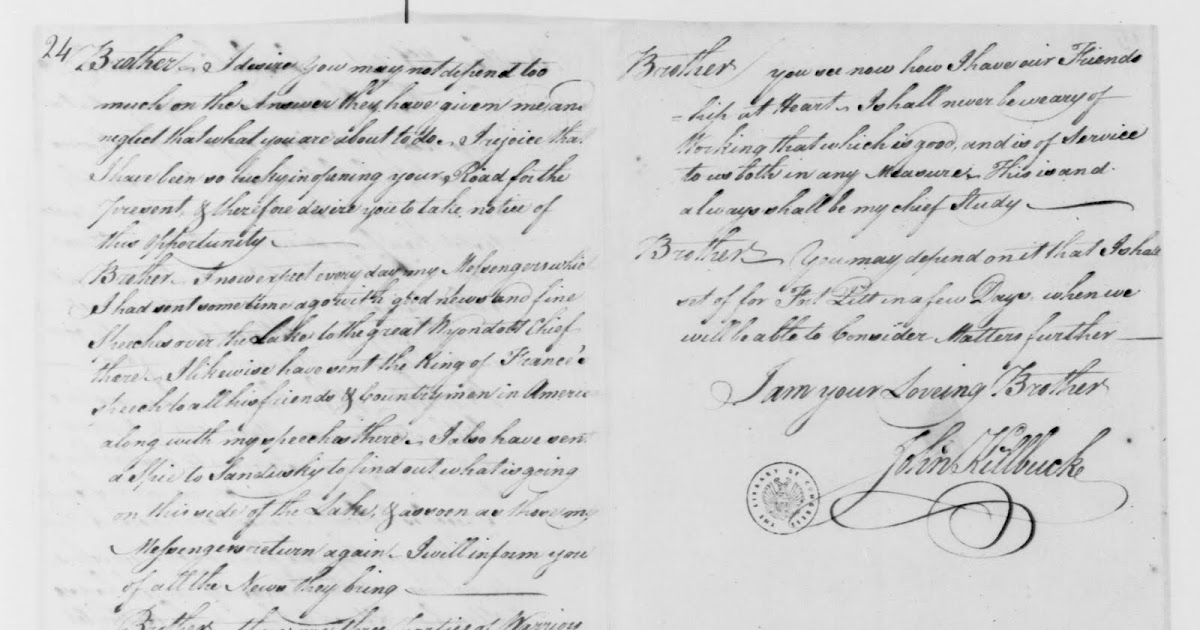 24
Brother I desire you may not depend too
much on the Answer they have given me, and
neglect that what you are about to do. I rejoice that
I have been so lucky in opening your Road for the
present, & therefore desire you to take notice of
this opportunity.
Brother. I now expect every day my Messengers which
I had sent sometime ago with good news and fine
Speeches over the Lake to the great Wyondott Chief
there. I likewise have sent the King of France's
speech to all his friends & Countryman in America
along with my speeches there. I also have sent
a Spie to Sandusky to find out what is going
on this side of the Lake, & as soon as those my
Messengers return again. I will inform you
of all the News they bring
Brother there are three parties of Warriors
Brother you see now how I have our Friends
=hip at Heart. I shall never be weary of
Working that which is good, and is of Service
to us both in any Measure. This is and
always shall be my chief Study.
Brother You may depend on it that I shall
set of for Fort Pitt in a few Days, when we
will be able to Consider Matters further
I am your Loveing Brother
John Killbuck
THE LIBRARY OF CONGRESS